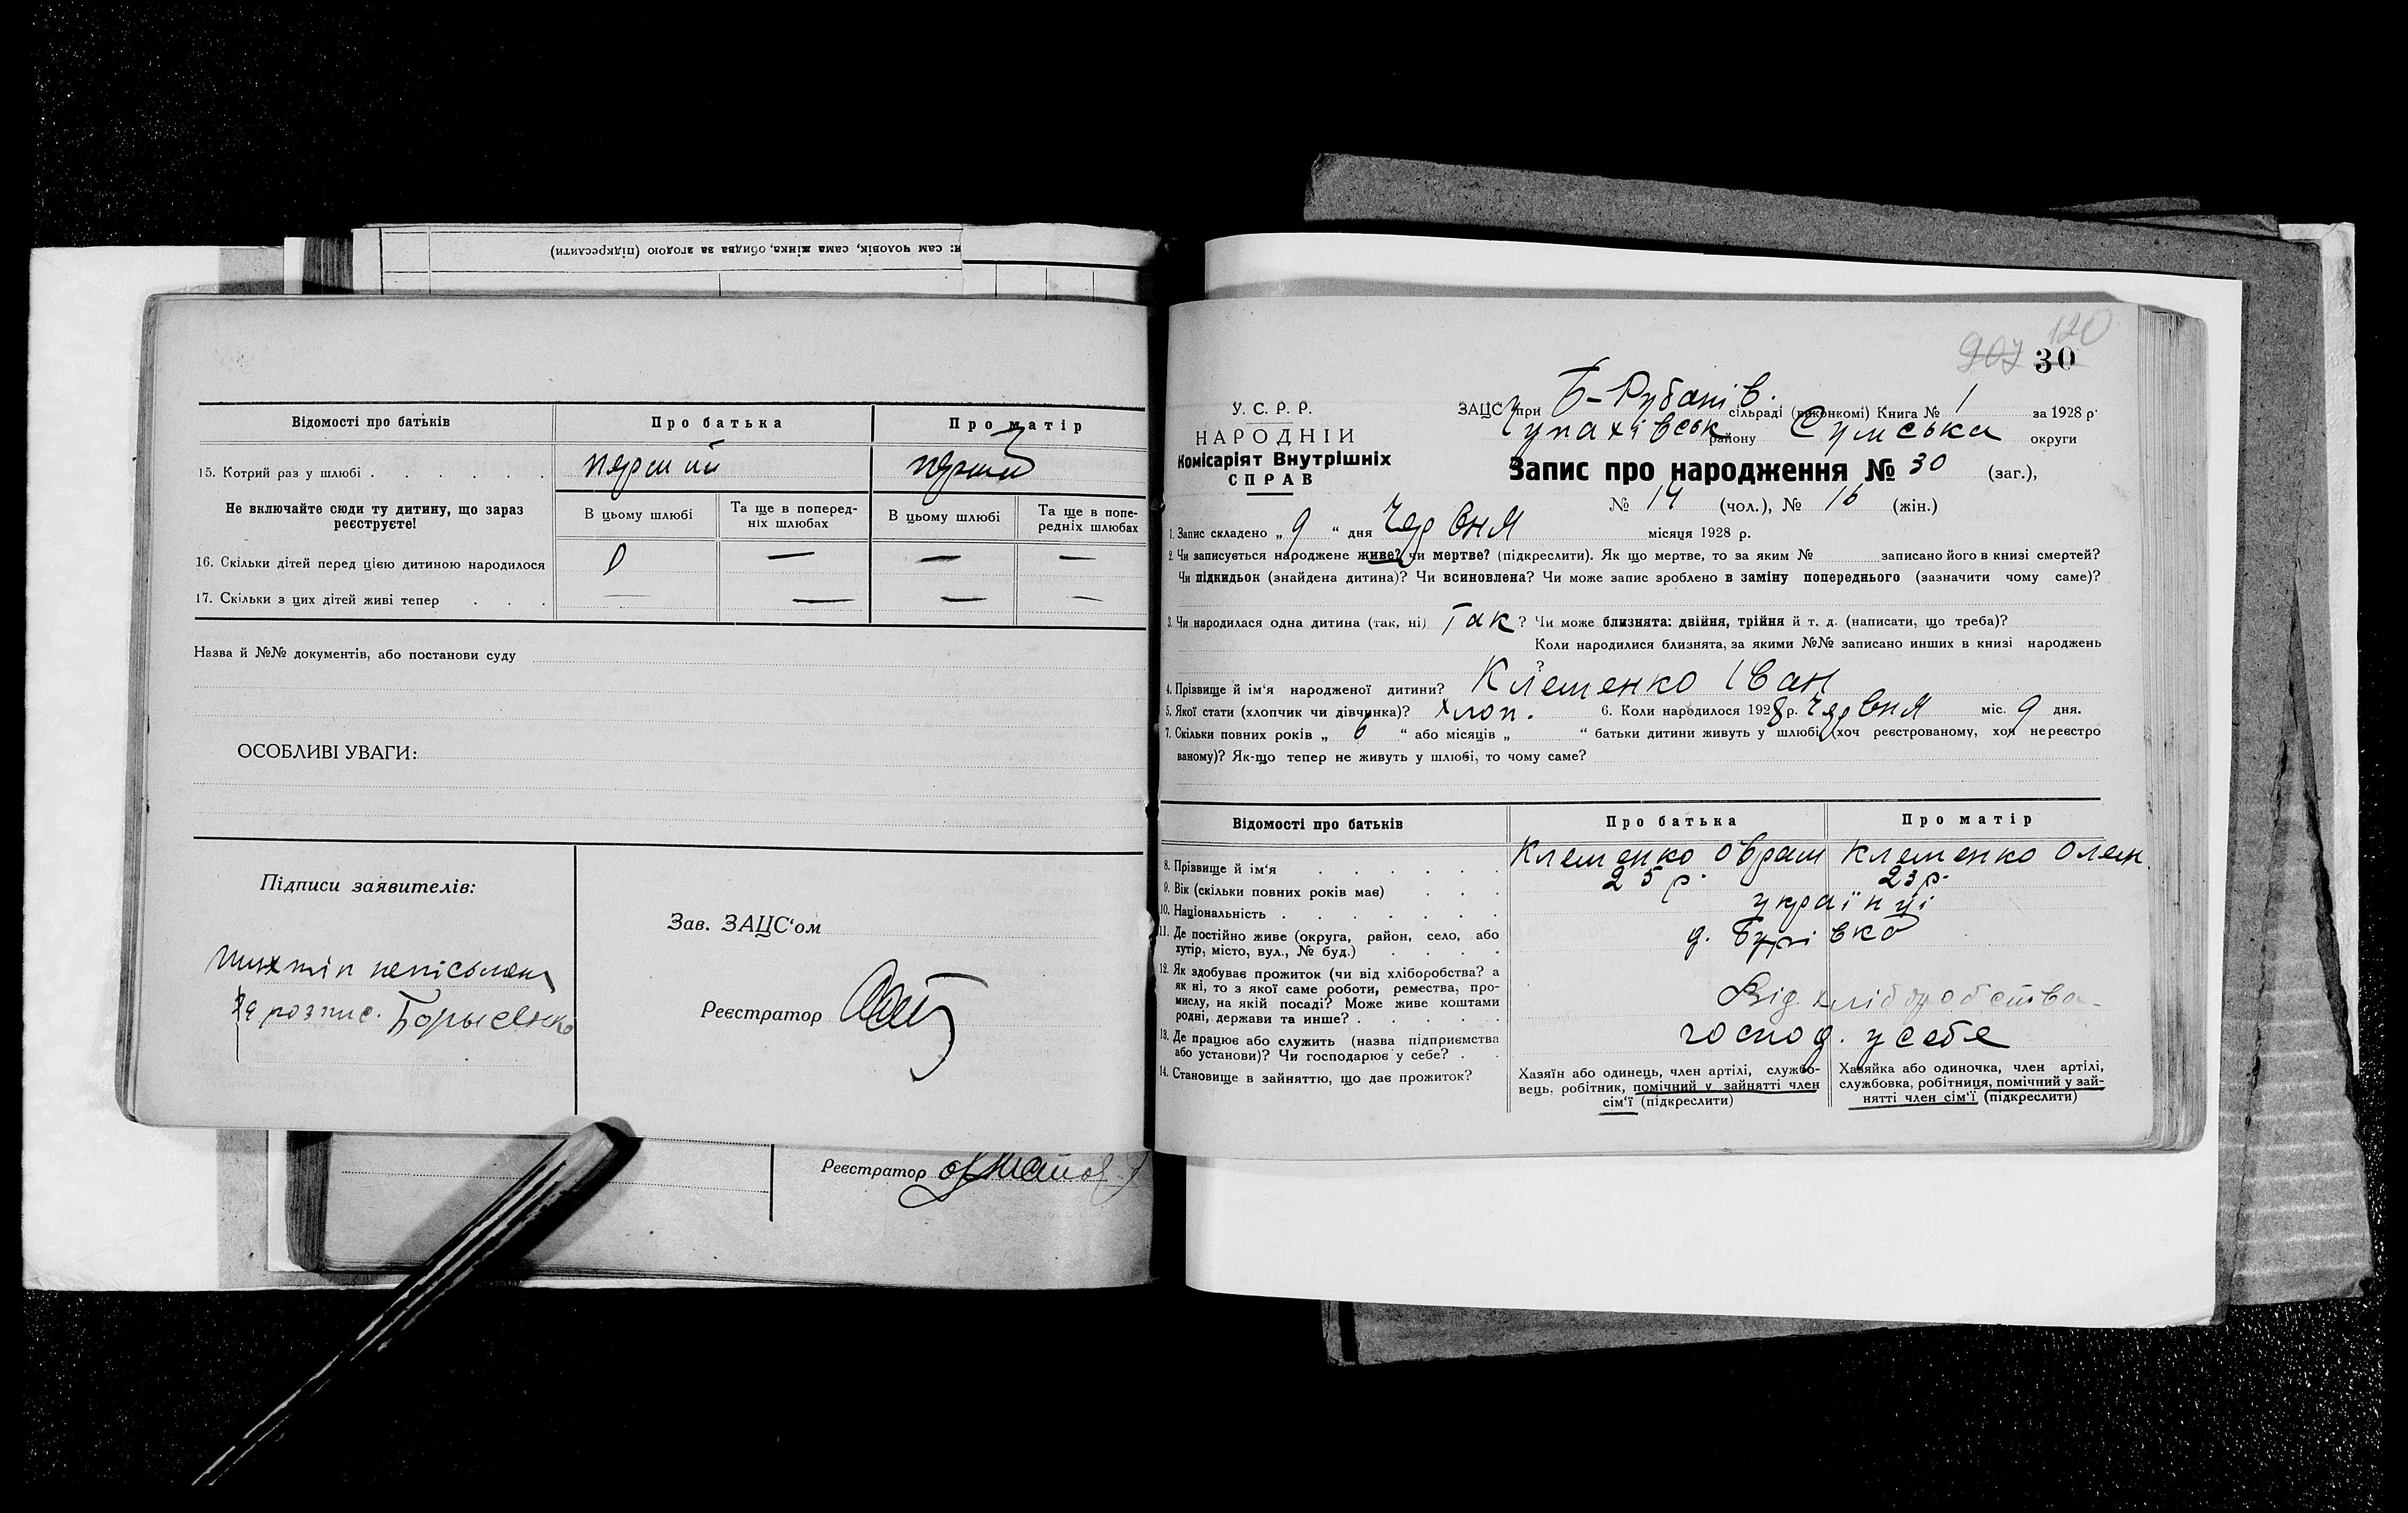 и: сам чоловік, сама жінка, обидва за згодою (підкреслити)
Відомості про батьків
Про батька
Про матір
15. Котрий раз у шлюбі . . . . . .
перший
перший
Не включайте сюди ту дитину, що зараз
реєструєте!
В цьому шлюбі
Та ще в поперед-
ніх шлюбах
В цьому шлюбі
Та ще в попе-
редніх шлюбах
16. Скільки дітей перед цією дитиною народилося
0 — — —
17. Скільки з цих дітей живі тепер . . .
— — — —
Назва й №№ документів, або постанови суду
ОСОБЛИВІ УВАГИ:
Підписи заявителів:
неписьмен
за розпис. Борисенко
Зав. ЗАЦС‘ом
Реєстратор
Реєстратор
907 120
30
У. С. Р. Р.
НАРОДНІЙ
Комісаріят Внутрішніх
СПРАВ
ЗАЦС при Б-Рубанів. сільраді (виконкомі) Книга № 1 за 1928 р.
Чупахівськ району Сумська округи
Запис про народження № 30 (заг.),
№ 14 (чол.), № 16 (жін.)
1. Запис складено „ 9 “ дня Червня місяця 1928 р.
2. Чи записується народжене живе? чи мертве? (підкреслити). Як що мертве, то за яким № записано його в книзі смертей?
Чи підкидьок (знайдена дитина)? Чи всиновлена? Чи може запис зроблено в заміну попереднього (зазначити чому саме)?
3. Чи народилася одна дитина (так, ні) Так ? Чи може близнята: двійня, трійня й т. д. (написати, що треба)?
Коли народилися близнята, за якими №№ записано инших в книзі народжень
?
4. Прізвище й ім‘я народженої дитини? Клеменко Іван
5. Якої стати (хлопчик чи дівчинка)? хлоп. 6. Коли народилося 1928 р. Червня міс. 9 дня.
7. Скільки повних років „ 6 “ або місяців „ “ батьки дитини живуть у шлюбі (хоч реєстрованому, хоч нереєстро
ваному)? Як-що тепер не живуть у шлюбі, то чому саме?
Відомості про батьків
Про батька
Про матір
8. Прізвище й ім‘я . . . . . .
Клеменко Оврам
Клеменко Олен
9. Вік (скільки повних років має) . . .
25 р.
23 р.
10. Національність . . . . . . .
українці
11. Де постійно живе (округа, район, село, або
хутір, місто, вул., № буд.) . . . .
12. Як здобуває прожиток (чи від хліборобства? а
як ні, то з якої саме роботи, ремества, про-
мислу, на якій посаді? Може живе коштами
родні, держави та инше? . . . . .
Від хліборобства
13. Де працює або служить (назва підприємства
або установи)? Чи господарює у себе? . .
господ. у себе
14. Становище в зайняттю, що дає прожиток?
Хазяїн або одинець, член артілі, службо-
вець, робітник, помічний у зайнятті член
сім‘ї (підкреслити)
Хазяйка або одиночка, член артілі,
службовка, робітниця, помічний у зай-
нятті член сім‘ї (підкреслити)